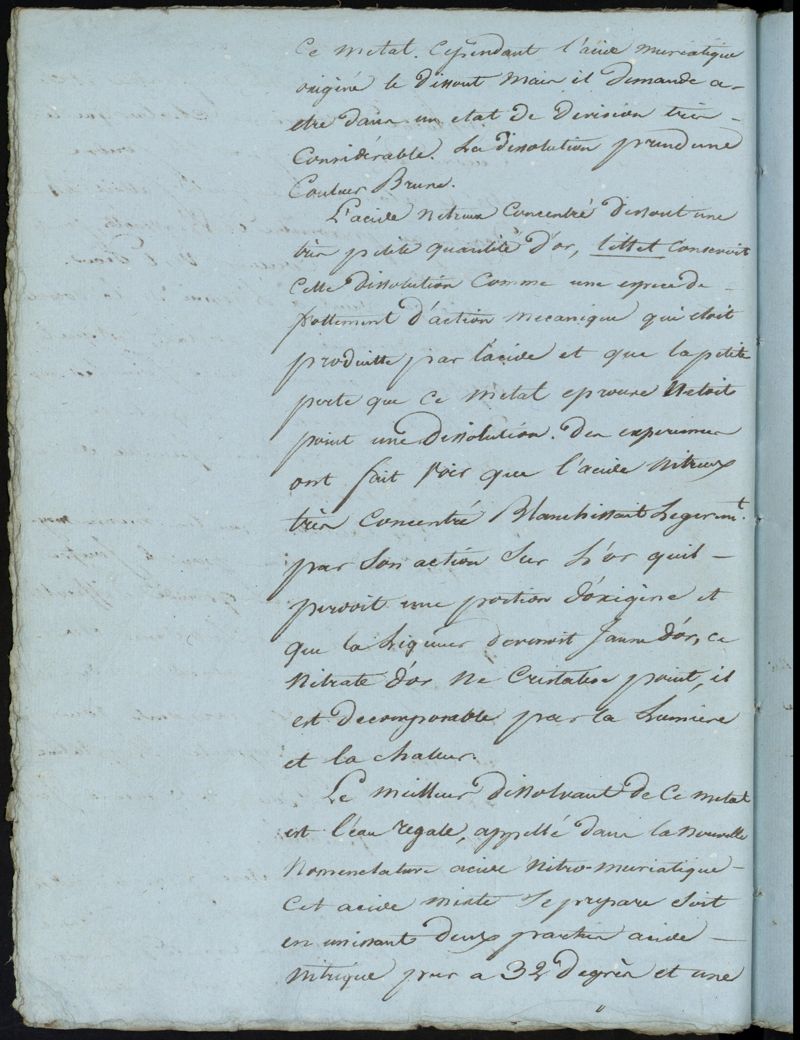 Ce metal. Cependant l'acide muriatique
oxigéné le dissout mais il demande a-
etre dans un etat de Division très-
Considérable. La dissolution prend une
Couluer Brune.
L'acide Nitreux Concentré dissout une
très petite quantité d'or, tillet Consevoit
cette dissolution comme une espece de-
frottement d'action mecanique qui etoit
produitte par l'acide et que la petite
perte que ce metal eprouve Netoit
point une dissolution. Des experiences
ont fait voir que l'acide Nitreux
très Concentré Blanchissait Legermt.
par Son action Sur L'or quil-
perdoit une portion d'oxigène et
que la Liqueur devenoit Jaune d'or, ce
Nitrate d'or Ne Cristalise point, il
est decomposable par la Lumiere
et la chaleur.
Le meilleur dissolvant de Ce metal
est l'eau regale, appellé dans la nouvelle
Nomenclature acide Nitro-muriatique-
Cet acide mixte Se prepare Soit
en unissant deux parties acide-
nitrique pur a 32 degrès et une